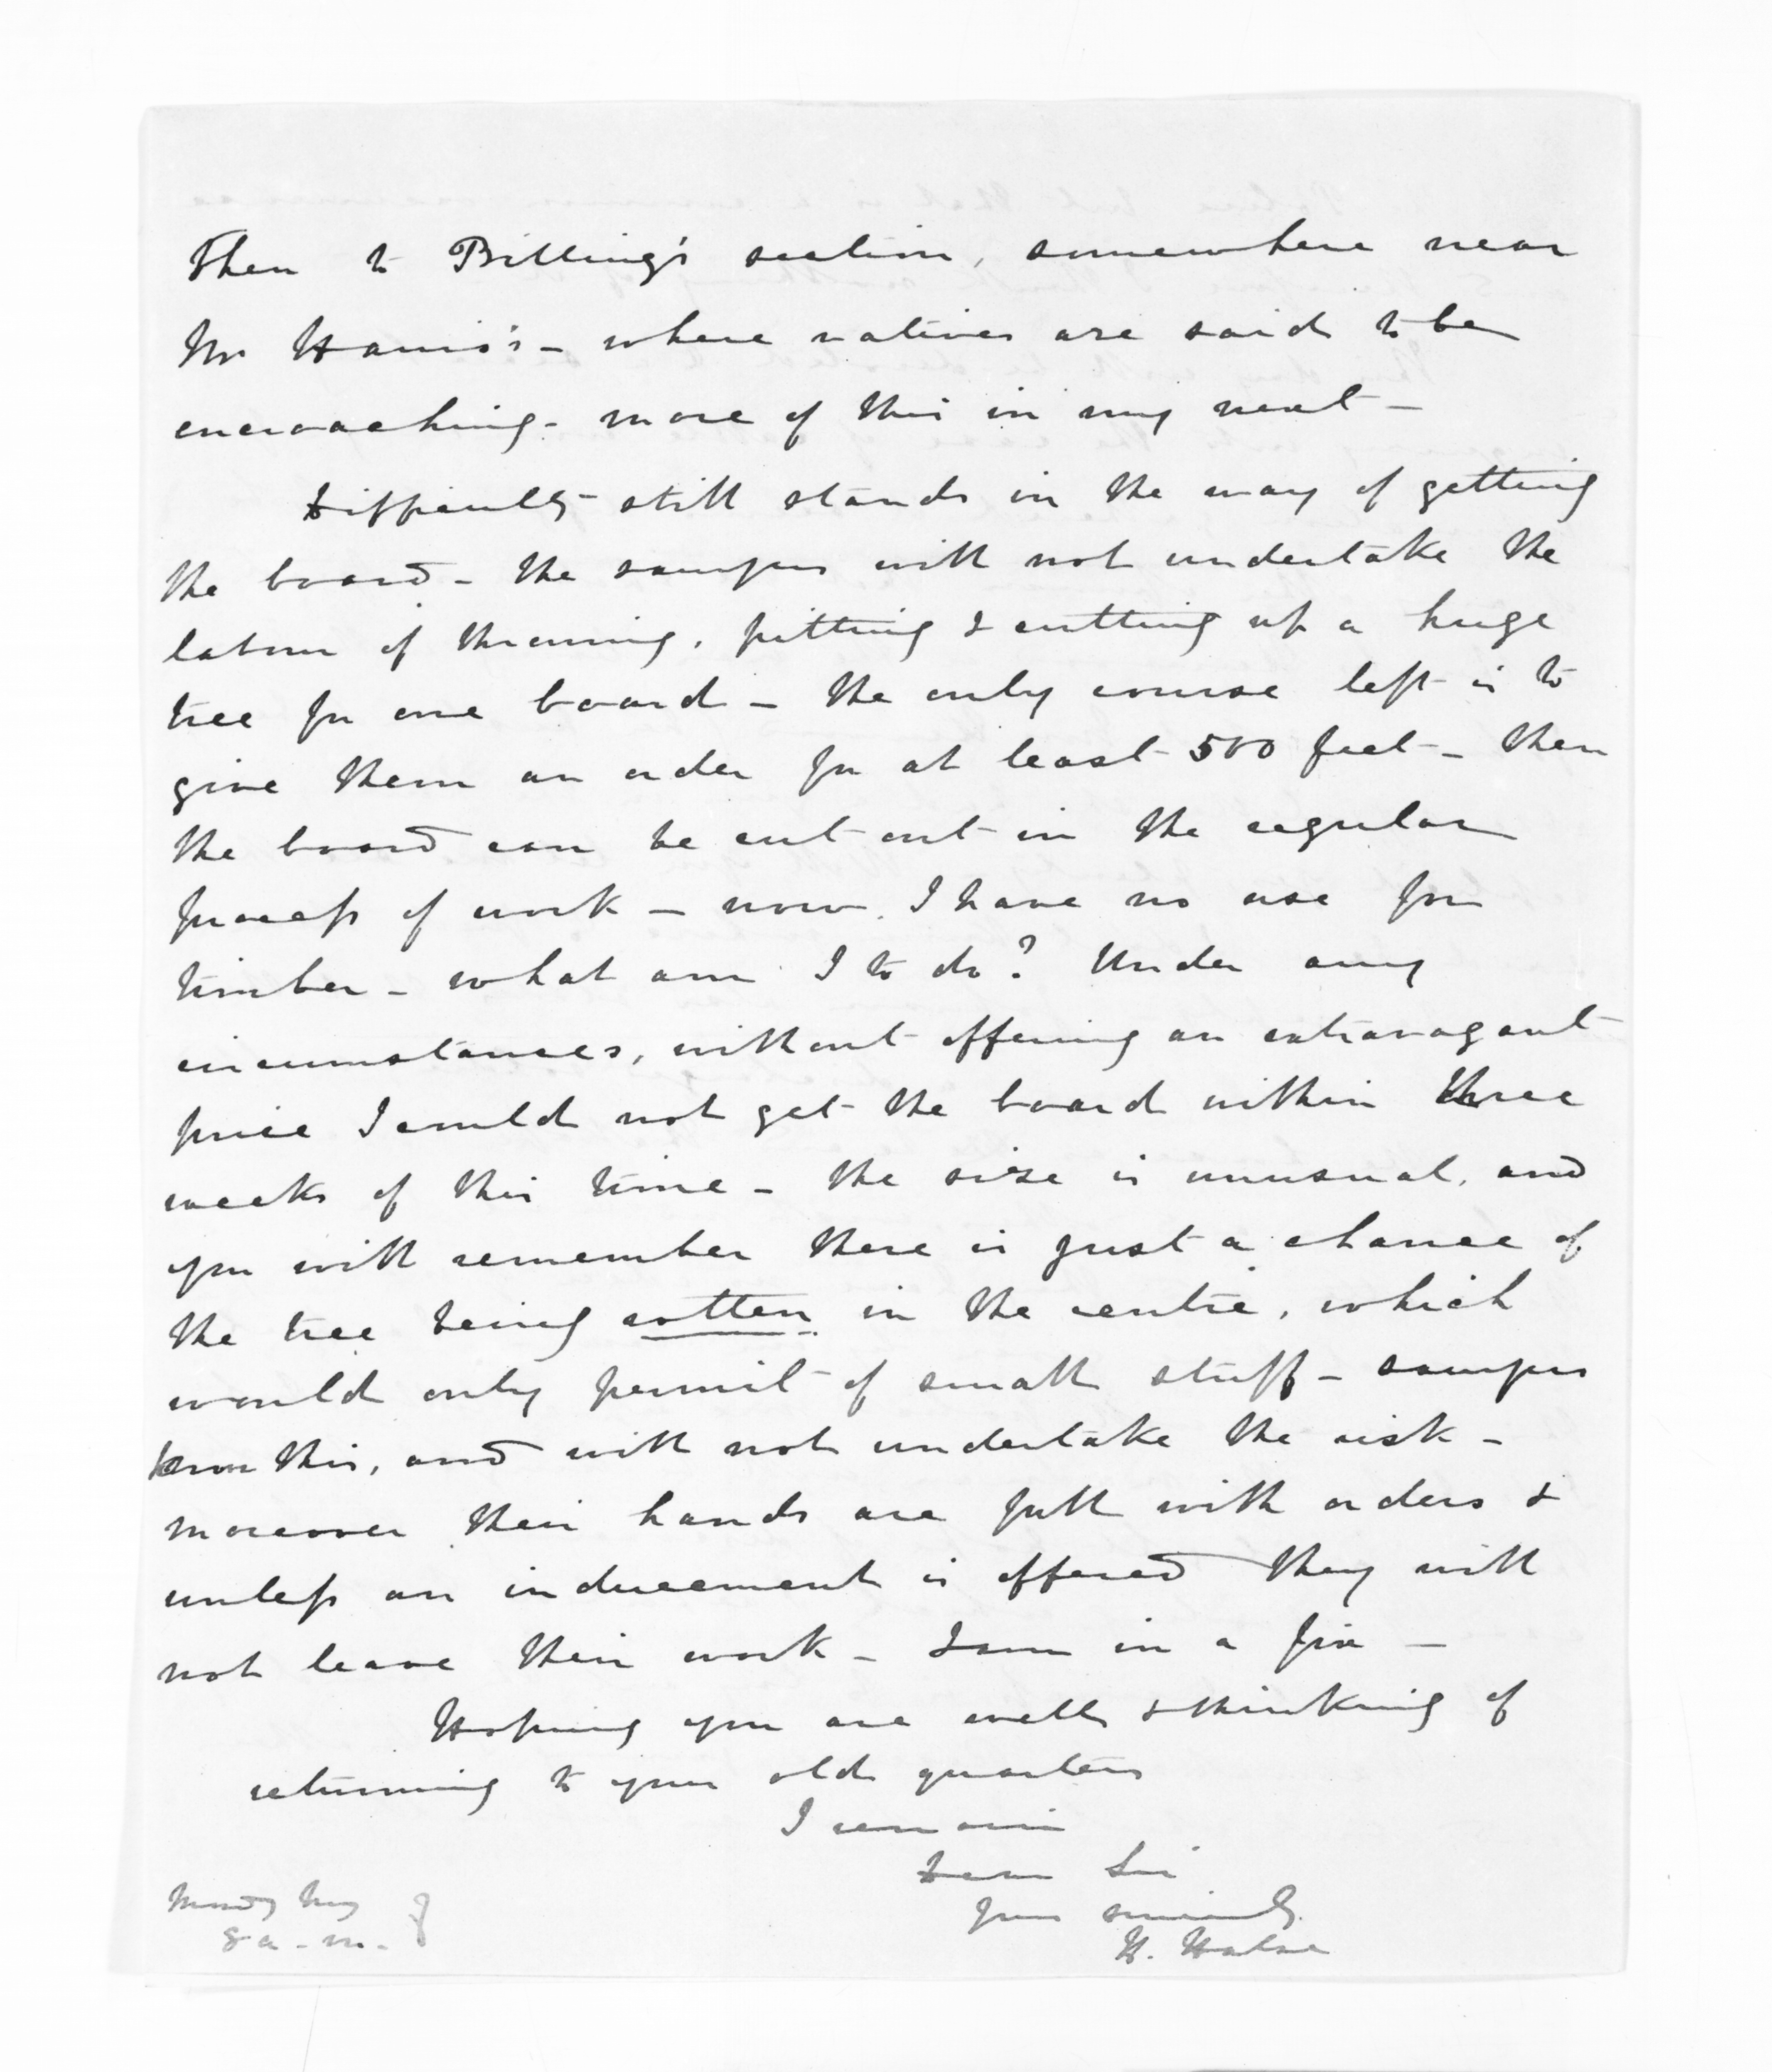 Then to Billing's section, somewhere near
Mr Harris's - where natives are said to be
encroaching - more of this in my next -
Difficulty still stands in the way of getting
the board - the sawyers will not undertake the
labour of throwing, pitting & cutting up a huge
tree for one board - the only course left is to
give them an order for at least 500 feet - then
the board can be cut out in the regular
process of work - now I have no use for
timber - what am I to do? Under any
circumstances, without offering an extravagant
price I could not get the board within three
weeks of this time - the size is unusual, and
you will remember there is just a chance of
the tree being rotten in the centre, which
would only permit of small stuff - sawyers
know this, and will not undertake the risk -
moreover their hands are full with orders &
unless an inducement is offered they will
not leave their work - I am in a fix -
Hoping you are well & thinking of
returning to your old quarters
I remain
Dear Sir
Yours sincerely
H. Halse
Monday
8 a.m.